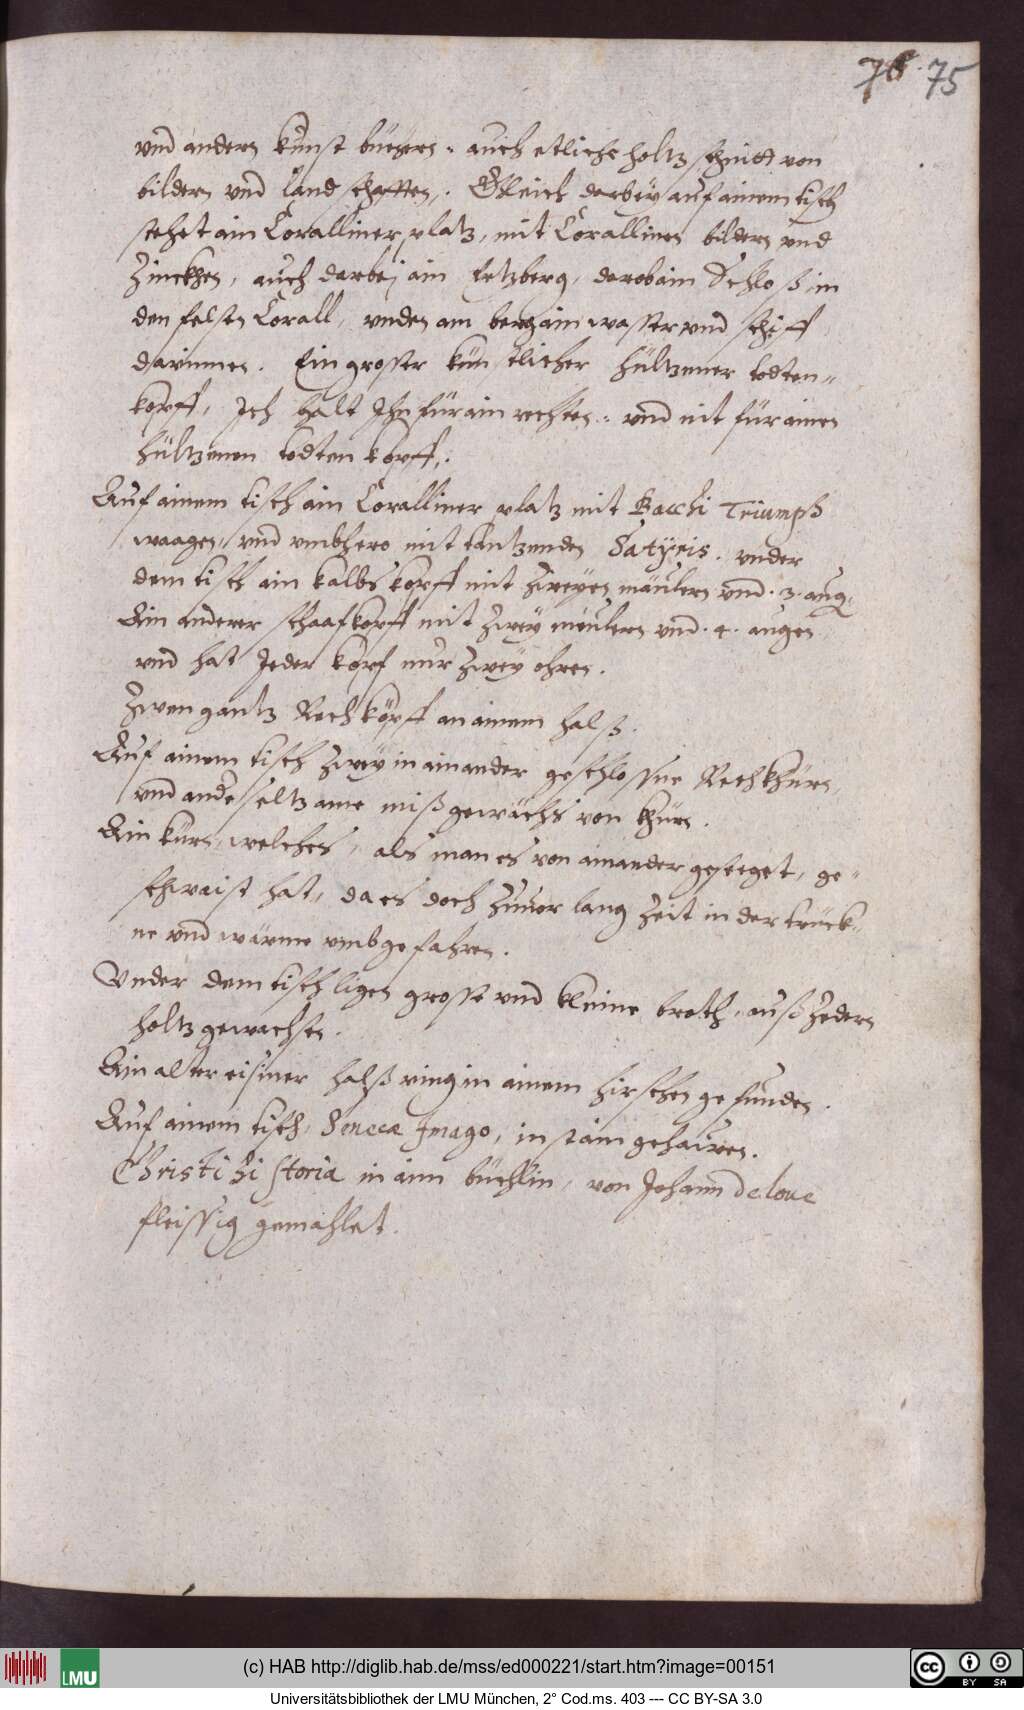 76. 75
vnd andern kunst büechern. auch etliche holtz schnitt von
bildern vnd landschafften,. Gleich darbey auf ainem tisch
stehet ain Coralliner platz, mit Corallinen bildern vnd
Zinckhen, auch darbej ain Ertzberg, darob ain Schloß in
den felsen Corall, vnden am berg ain wasser vnd schiff
darinnen. Ein grosser künstlicher hültzener todten-
kopff, Ich halt Ihn für ain rechten: vnd nit für ainen
hültzenen todten kopff,.
Auf ainem tisch ain Coralliner platz mit Bacchi Triumph
waagen, vnd vmbhero mit tantzenden Satyris. vnder
dem tisch ain kalbskopff mit zweyen mäulern vnd .3. aug.
Ain anderer schaafkopff mit zwey meulern vnd .4. augen
vnd hat Jeder kopf nur zwey ohren.
Zwen gantz Rechköpff an ainem halß.
Auf ainem tisch zwey in ainander geschlossne Rechkhürn,
vnd ande seltzame mißgewächs von khürn.
Ain kürn, welches, als man es von ainander geseeget, ge-
schwaist hat, da es doch zuuor lang zeit in der trück-
ne vnd wärme vmbgefahren.
Vnder dem tisch ligen grosse vnd kleine broth, auß Zedern
holtz gewachsen.
Ain alter eisiner halß ring in ainem hirschen gefunden.
Auf ainem tisch, Senecæ Imago, in stain gehawen.
Christi historia in aim büchlin, von Johann de loue
fleissig gemahlet.
(c) HAB http://diglib.hab.de/mss/ed000221/start.htm?image=00151
LMU
cc BY SA
Universitätsbibliothek der LMU München, 2° Cod.ms. 403 --- CC BY-SA 3.0